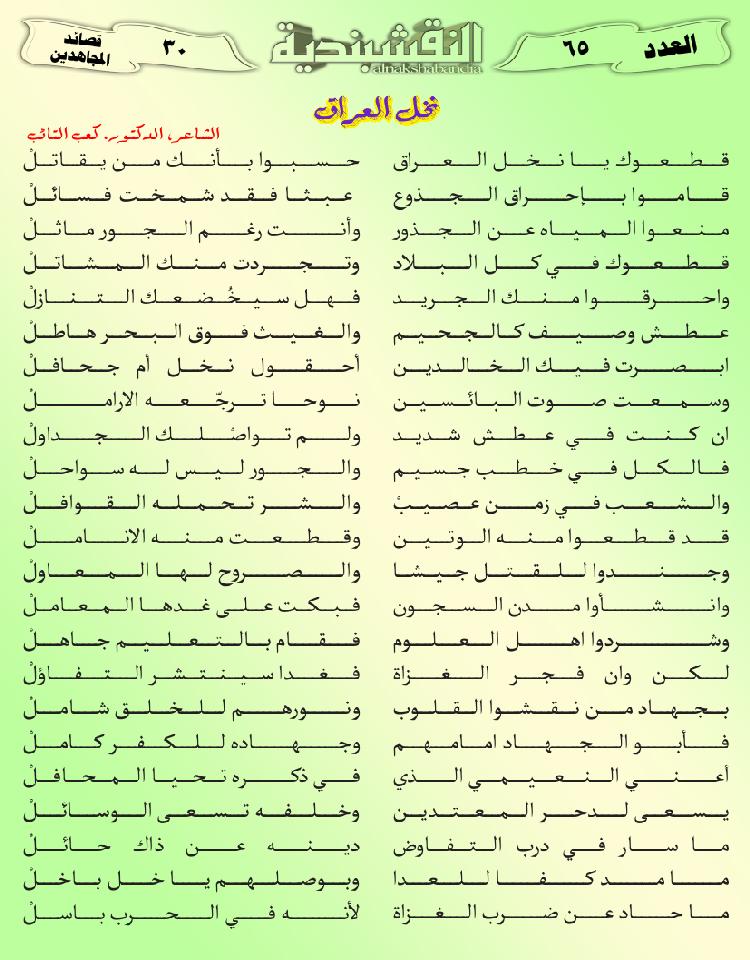 العدد ٦٥ النقشبندية ٣٠ قصائد المجاهدين
alnakshabandia
نخل العراق
الشاعر، الدكتور. كعب التائب
قطعوك يا نخل العراق حسبوا بأنك من يقاتلْ
قاموا بإحراق الجذوع عبثا فقد شمخت فسائلْ
منعوا المياه عن الجذور وأنت رغم الجور ماثلْ
قطعوك في كل البلاد وتجردت منك المشاتلْ
واحرقوا منك الجريد فهل سيخُضعك التنازلْ
عطش وصيف كالجحيم والغيث فوق البحر هاطلْ
ابصرت فيك الخالدين أحقول نخل أم جحافلْ
وسمعت صوت البائسين نوحا ترجّعه الاراملْ
ان كنت في عطش شديد ولم تواصُلك الجداولْ
فالكل في خطب جسيم والجور ليس له سواحلْ
والشعب في زمن عصيبُ والشر تحمله القوافلْ
قد قطعوا منه الوتين وقطعت منه الاناملْ
وجندوا للقتل جيشا والصروح لها المعاولْ
وانشأوا مدن السجون فبكت على غدها المعاملْ
وشردوا اهل العلوم فقام بالتعليم جاهلْ
لكن وان فجر الغزاة فغدا سينتشر التفاؤلْ
بجهاد من نقشوا القلوب ونورهم للخلق شاملْ
فأبو الجهاد امامهم وجهاده للكفر كاملْ
أعني النعيمي الذي في ذكره تحيا المحافلْ
يسعى لدحر المعتدين وخلفه تسعى الوسائلْ
ما سار في درب التفاوض دينه عن ذاك حائلْ
ما مد كفا للعدا وبوصلهم يا خل باخلْ
ما حاد عن ضرب الغزاة لأنه في الحرب باسلْ